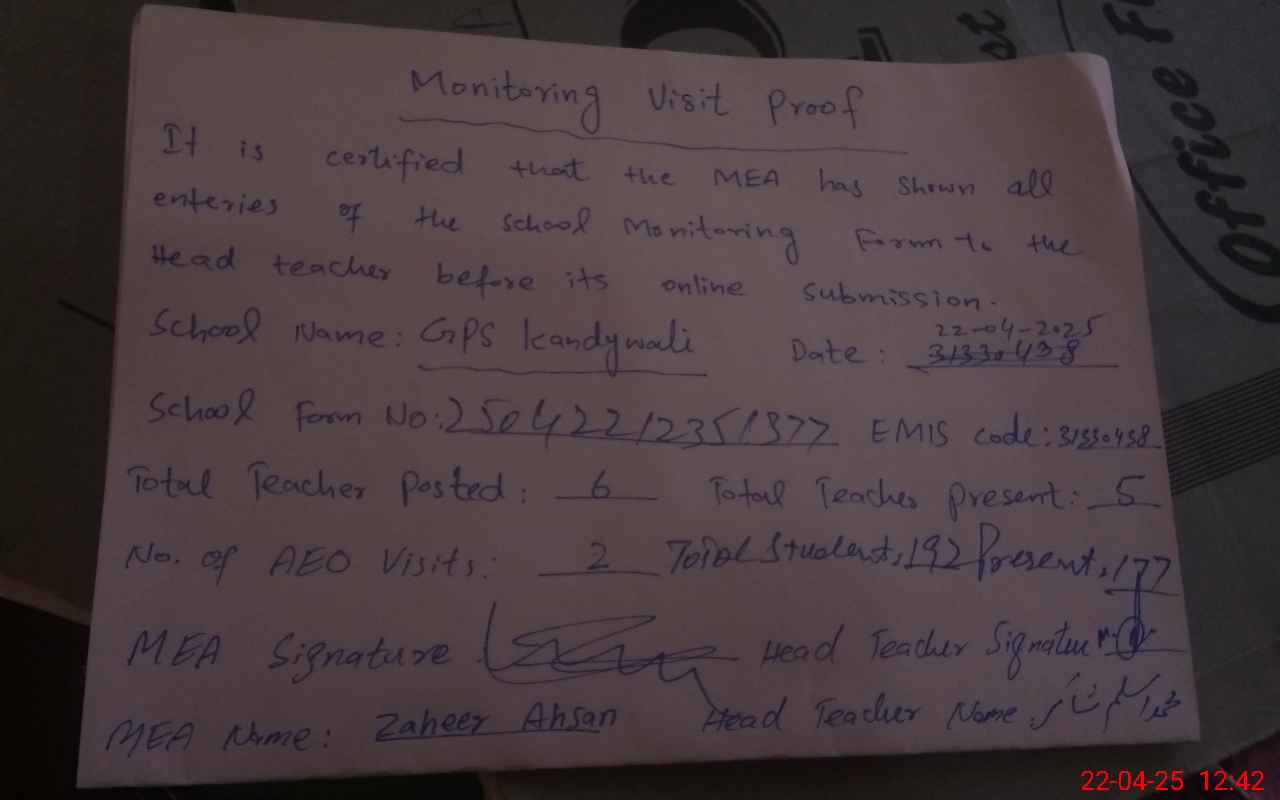 Office
Monitoring Visit Proof
It is certified that the MEA has shown all
enteries of the school Monitoring Form to the
Head teacher before its online submission.
22-04-2025
School Name: GPS Kandywali Date: 31330438
School Form No: 25042212351377 EMIS code: 31330438
Total Teacher Posted: 6 Total Teacher present: 5
No. of AEO Visits: 2 Total Student, 192 Present, 177
MEA Signature Head Teacher Signature
MEA Name: Zaheer Ahsan Head Teacher Name:
22-04-25 12:42